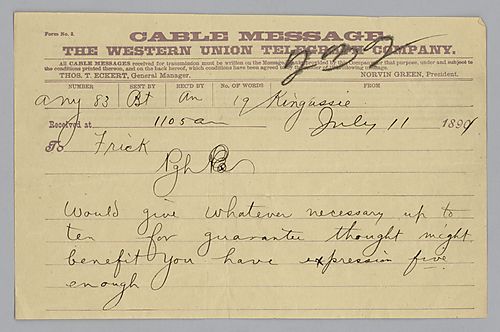 Form No. 2.
CABLE MESSAGE.
THE WESTERN UNION TELEGRAPH COMPANY.
All CABLE MESSAGES received for transmission must be written on the Message Blanks provided by this Company for that purpose, under and subject to
the conditions printed thereon, and on the back hereof, which conditions have been agreed to by the sender of the following message.
THOS. T. ECKERT, General Manager. NORVIN GREEN, President.
NUMBER SENT BY REC'D BY No. OF WORDS FROM
any 83 Bt An 19 Kingussie
Received at 1105 am July 11 189
To Frick
Pgh
Would give whatever necessary up to
ten for guarantee thought might
benefit you have expression five
enough